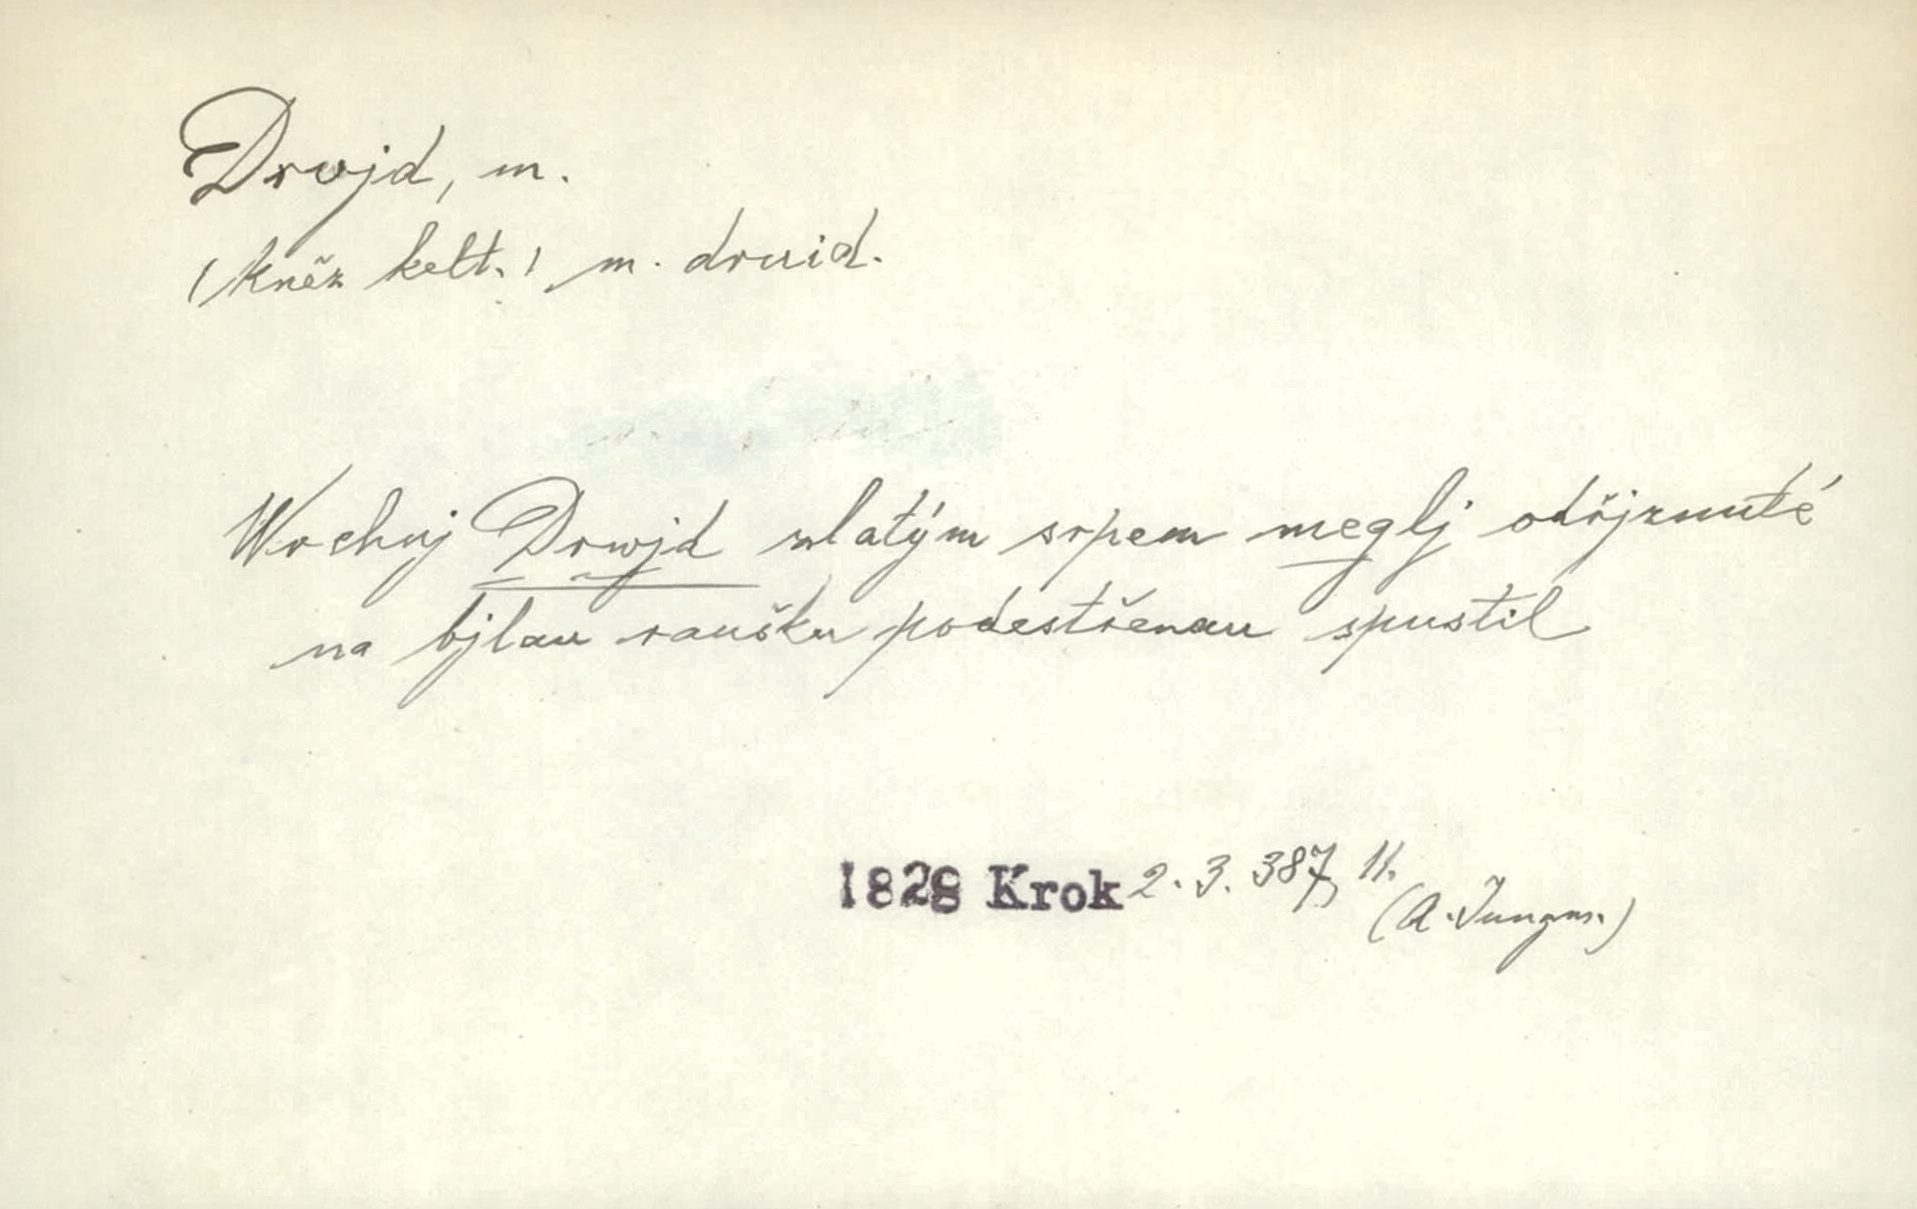 Drwjd, m.
(kněz kelt.) m. druid.
Wrchnj Drwjd zlatým srpem meglj odřjznuté
na bjlau raušku podestřenau spustil
1828 Krok 2. 3. 387, 11.
(A. Jungm.)